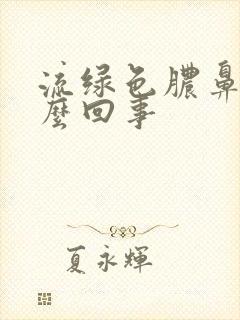 流绿色脓鼻
麼回事
夏永輝